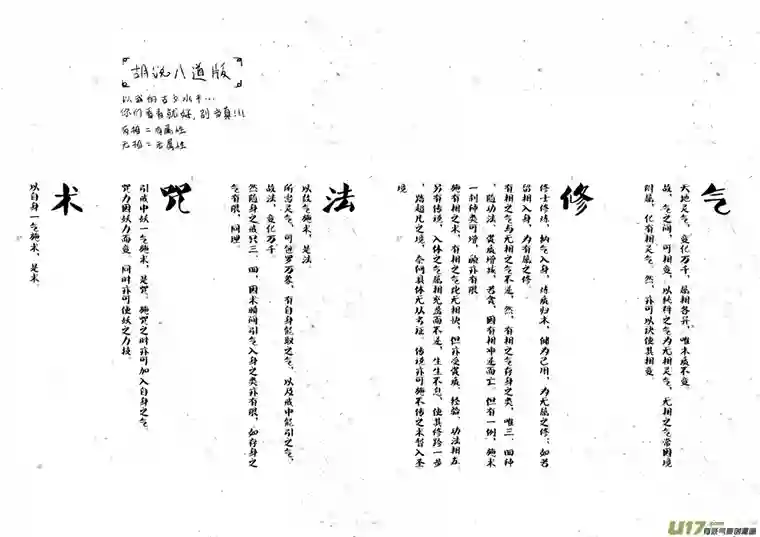 胡说八道版
以我的古文水平…
你们看看就好,别当真!!!
有相=有属性
无相=无属性
气
天地灵气，变亿万千，属相各异，唯本质不变
故，气之间，可相变，以纯粹之气为无相灵气，无相之气常因境
附属，亿有相灵气。然，亦可以诀使其相变
修
修士修炼，纳气入身，炼质归本，储为己用，为无属之修；如若
留相入身，为有属之修
有相之气与无相之气不逆，然，有相之气存身之类，唯三、四种
，随功法、资质增减，若贪，因有相冲逆而亡。但有一例，施术
一刻种类可增，融亦有限
施有相之术，有相之气比无相快，但亦受资质、经验、功法相左
另有传说，入体之气属相充盈而不逆，生生不息，使其修路一步
，踏超凡之境，奈何具体无以考证。传说亦可施不传之术暂入圣
境
法
以故气施术，是法
所出灵气，可包罗万象，有自身能取之气，以及戒中能引之气，
故法，变亿万千
然随身之戒只三、四，因术瞬间引气入身之类亦有限，如存身之
气有限，同理
咒
引戒中妖一气施术，是咒。施咒之时亦可加入自身之气
咒力因妖力而变，同时亦可使妖之力技
术
以自身一气施术，是术
U17
有妖气原创漫画